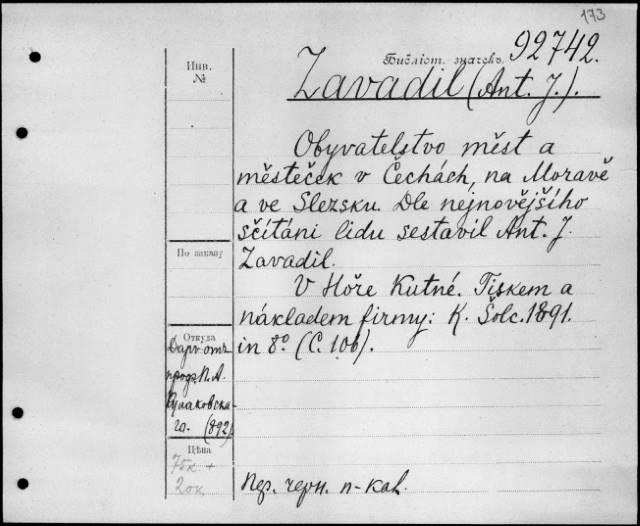 173
Библіот. значекъ. 92742.
Инв.
№
Zavadil (Ant. J.).
Obyvatelstvo měst a
městeček v Čechách, na Moravě
a ve Slezsku. Dle nejnovějšího
sčítáni lidu sestavil Ant. J.
Zavadil.
По заказу
V Hoře Kutné. Tiskem a
nákladem firmy: K. Šolc. 1891.
in 8º (C. 106).
Откуда
Даръ отъ
проф. П. А.
Кулаковска-
го. (892)
Цѣна
75к +
20к
Пер. черн. п-кал.